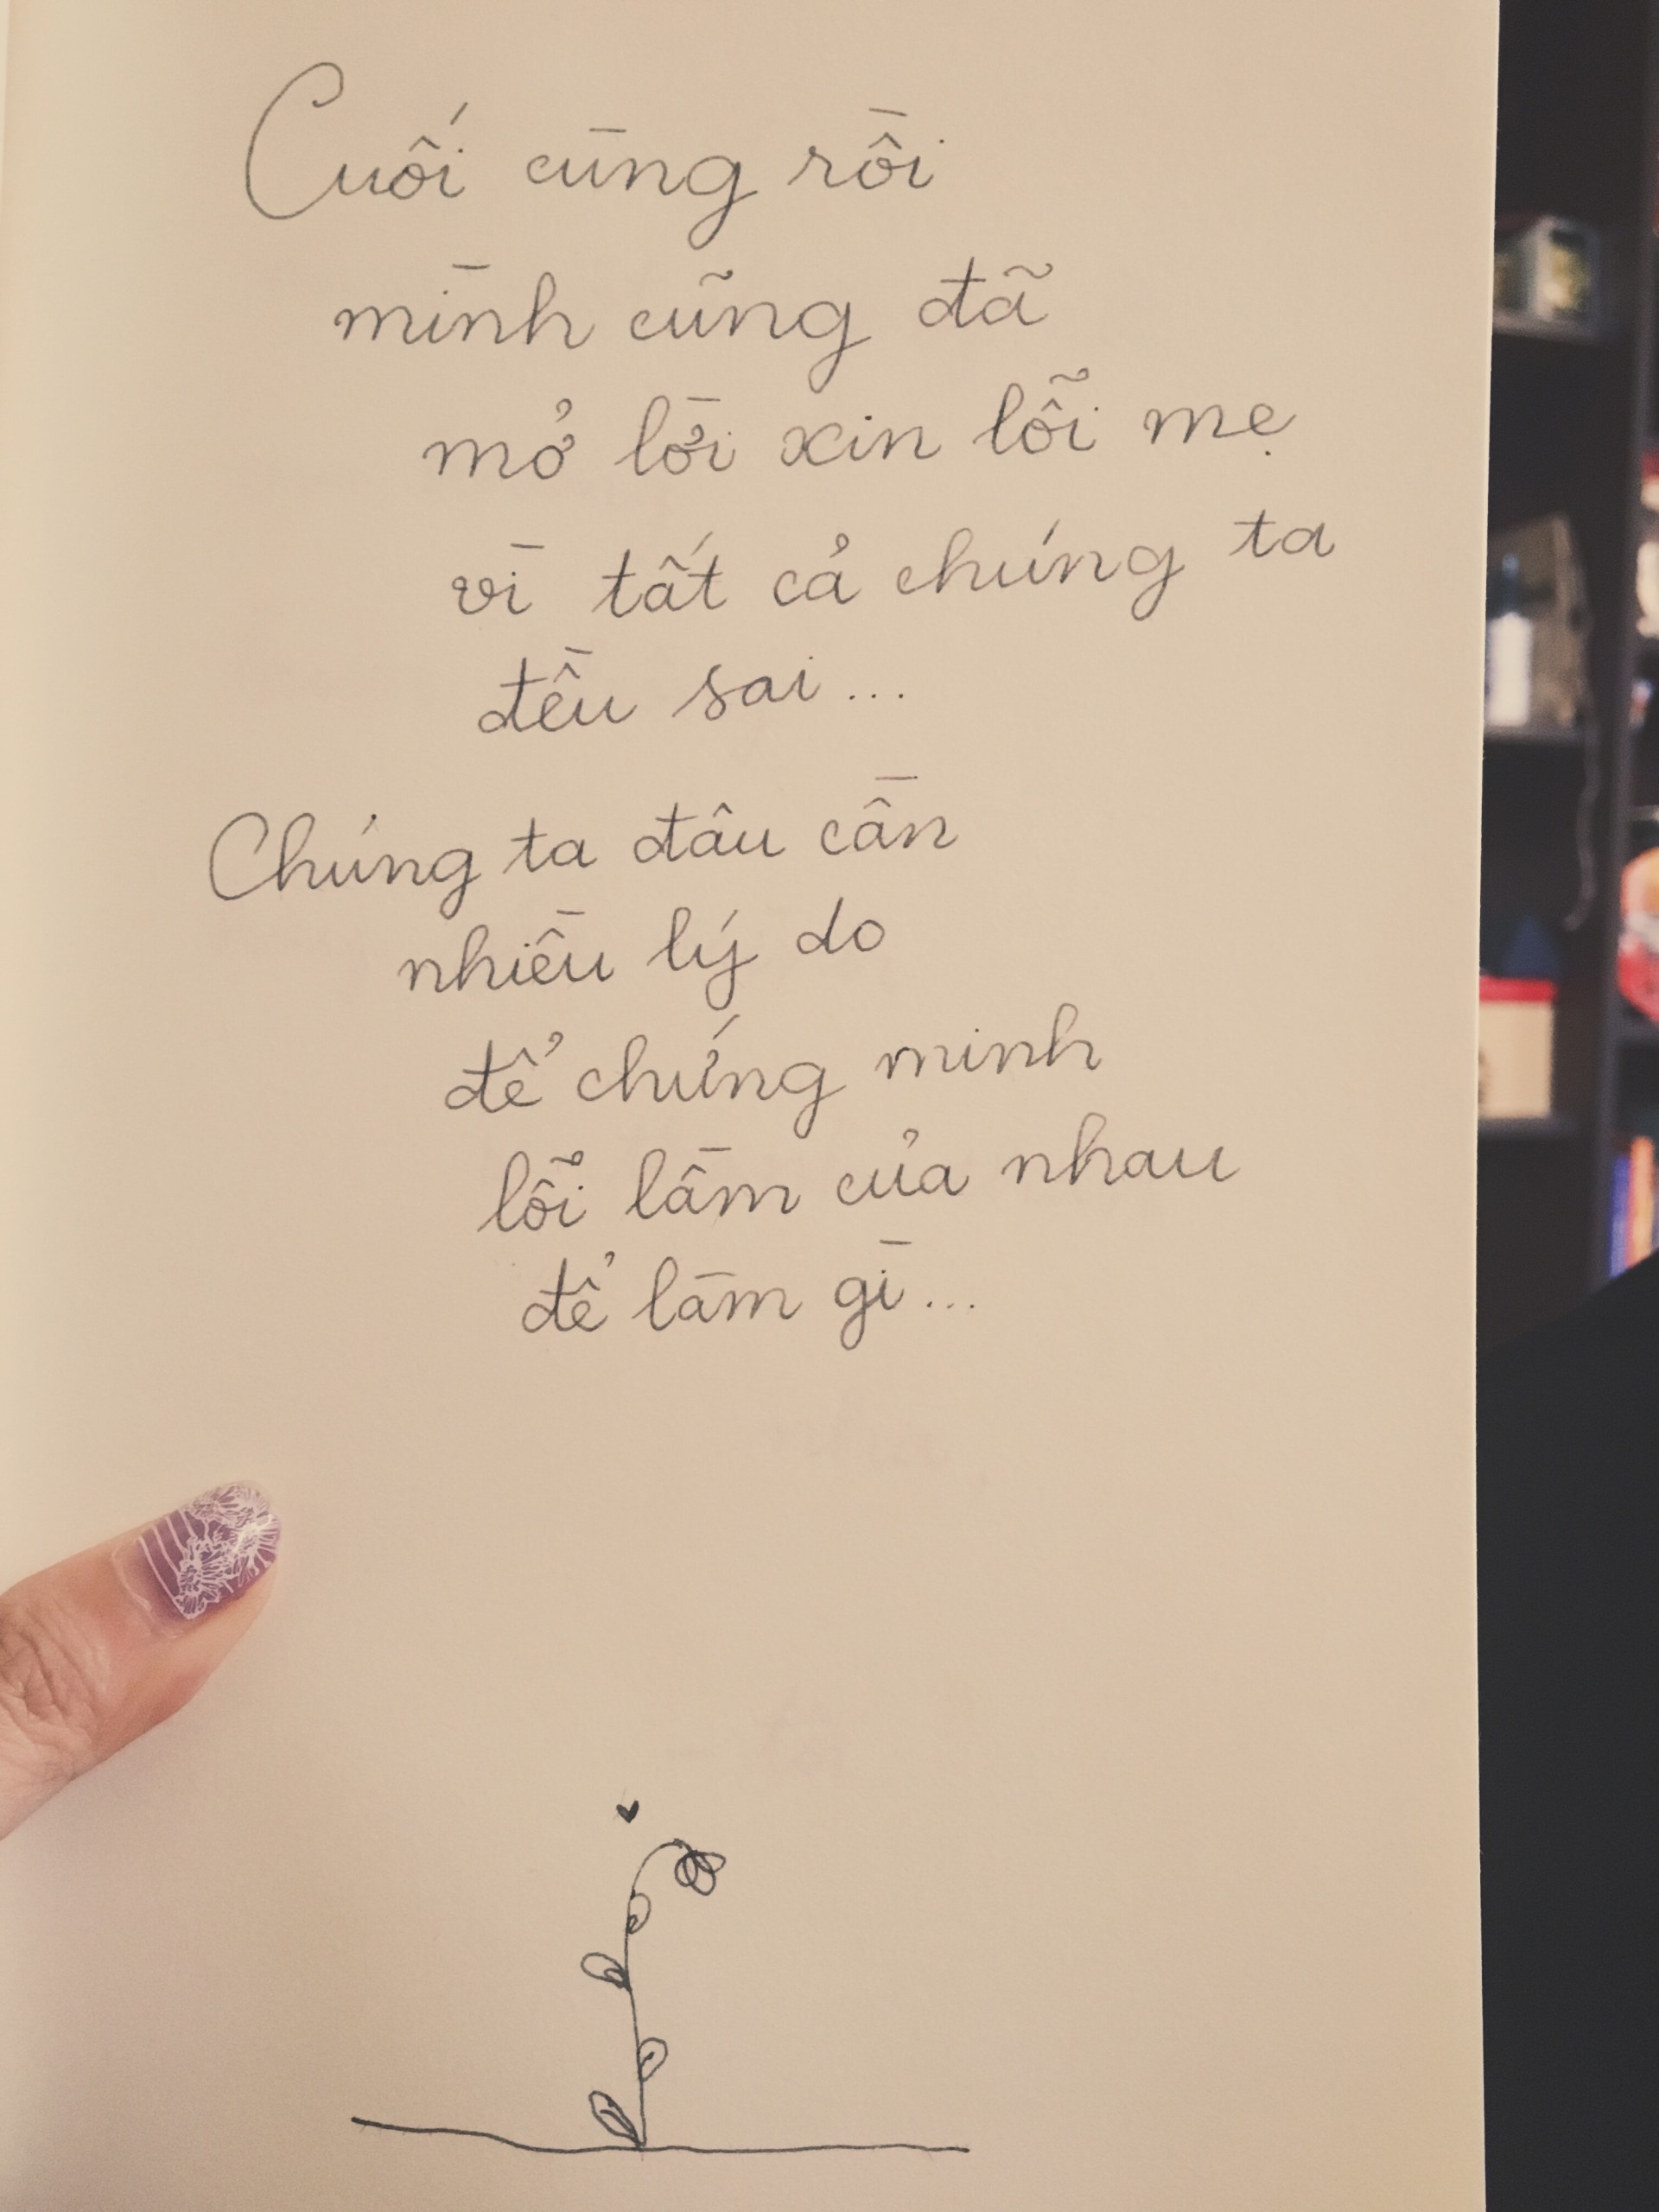 Cuối cùng rồi
mình cũng đã
mở lời xin lỗi mẹ
vì tất cả chúng ta
đều sai...
Chúng ta đâu cần
nhiều lý do
để chứng minh
lỗi lầm của nhau
để làm gì...